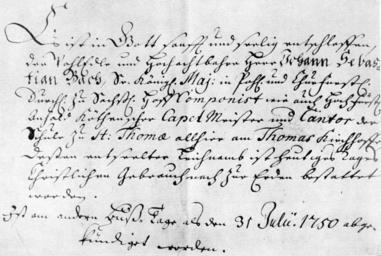 Es ist in Gott sanfft und seelig entschlaffen,
der Wohledle und Hochachtbahre Herr Johann Sebas-
tian Bach, Sr. Königl. Maj: in Pohl. und Churfürstl.
Durchl. zu Sachß. Hoff Componist wie auch Hochfürstl.
Anhalt Köthenscher Capell Meister und Cantor der
Schule zu St: Thomæ allhier am Thomas Kirchhoffe
Deßen entseelter Leichnam ist heutiges Tages
Christlichen Gebrauch nach zur Erden bestattet
worden.
Ist am andern Buß-Tage als den 31 Julii. 1750 abge-
kündiget worden.